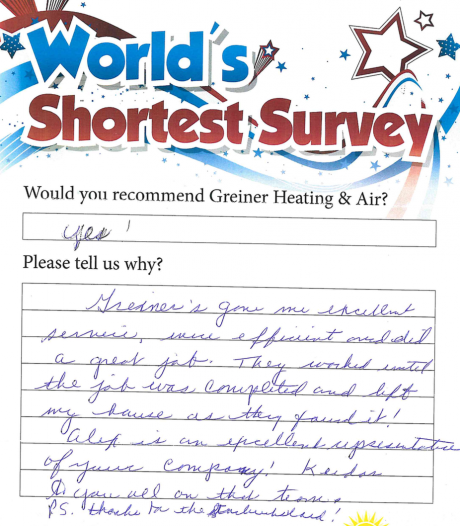 World's
Shortest Survey
Would you recommend Greiner Heating & Air?
yes!
Please tell us why?
Greiner's gave me excellent
service, were efficient and did
a great job. They worked until
the job was completed and left
my house as they found it!
Alex is an excellent representative
of your company! Kudos
to you all on that team.
P.S. thanks for the